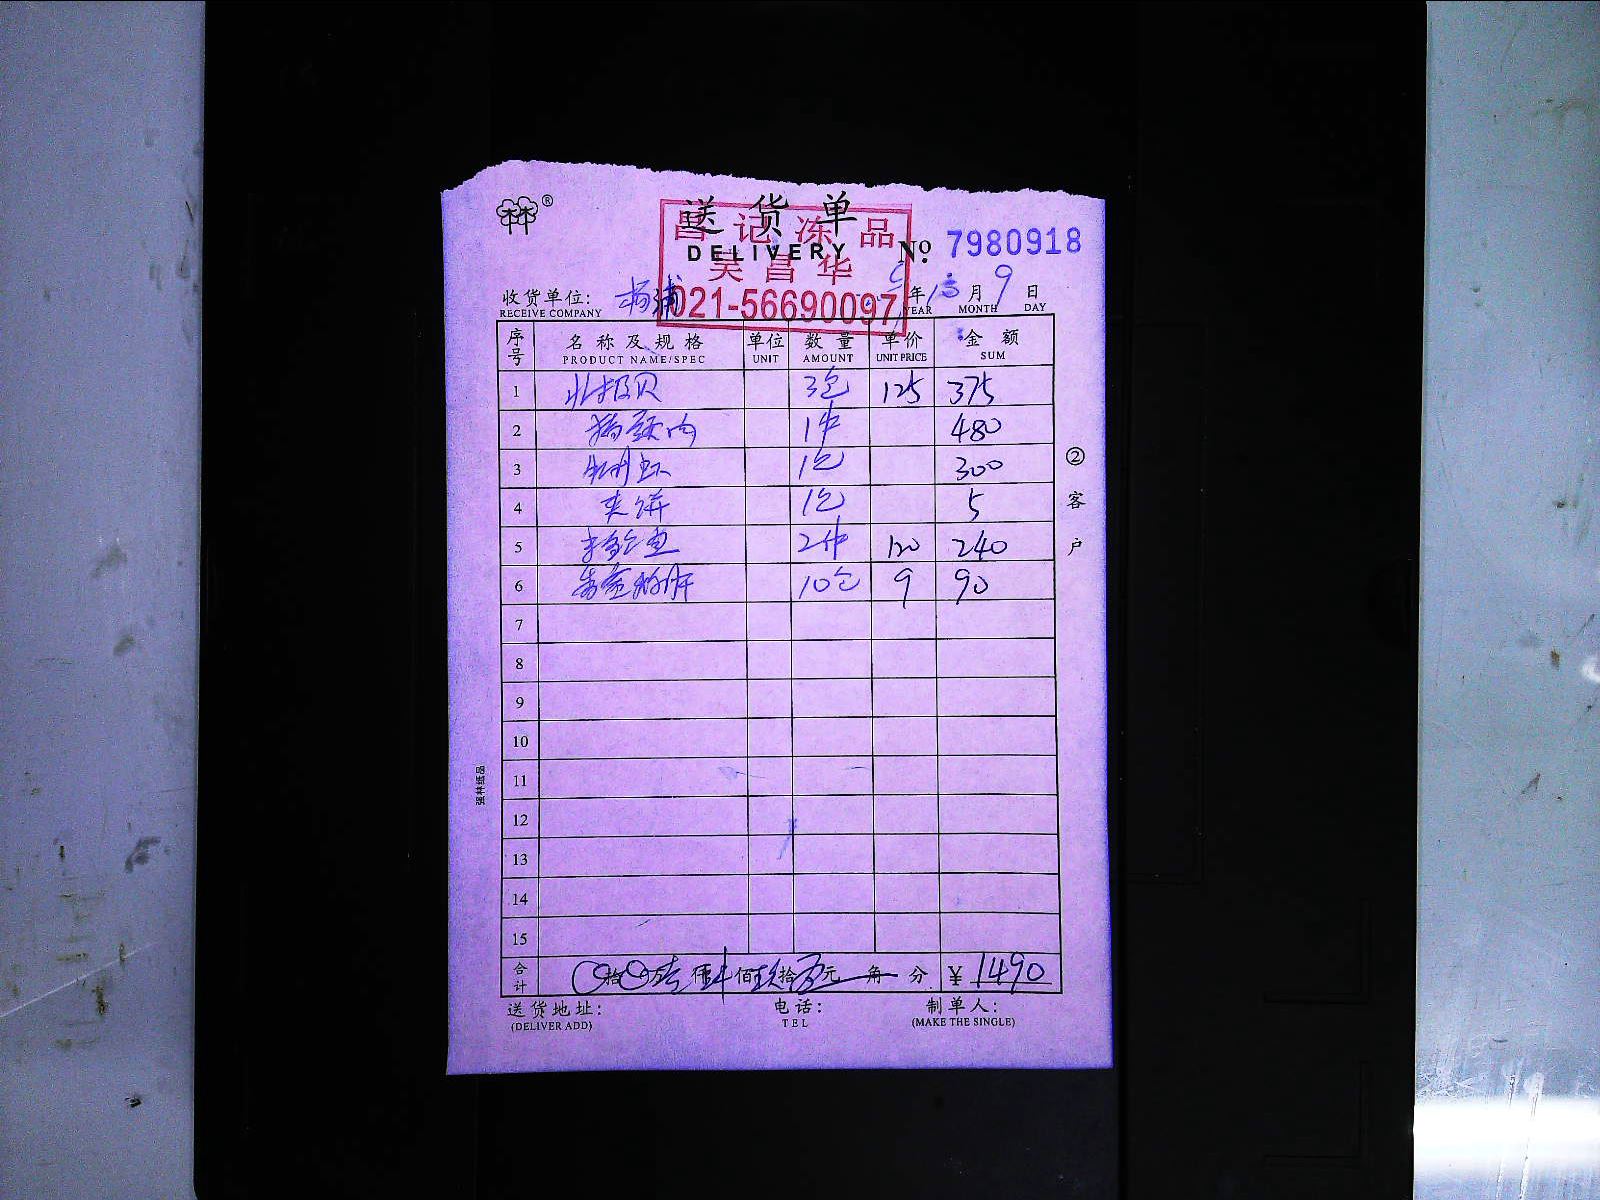 林®
送货单
昌记冻品
DELIVERY
№ 7980918
吴昌华
021-56690097
收货单位: 杨浦 年 月 9 日
RECEIVE COMPANY YEAR MONTH DAY
序号 名称及规格 单位 数量 单价 金额
PRODUCT NAME/SPEC UNIT AMOUNT UNIT PRICE SUM
1 北极贝 3包 125 375
2 猪颈肉 1件 480
3 1包 300
4 夹饼 1包 5
5 2件 120 240
6 10包 9 90
7
8
9
10
11
12
13
14
15
合计 拾 万 仟 佰 拾 元 角 分 ¥ 1490
送货地址: 电话: 制单人:
(DELIVER ADD) TEL (MAKE THE SINGLE)
②客户
强林纸品